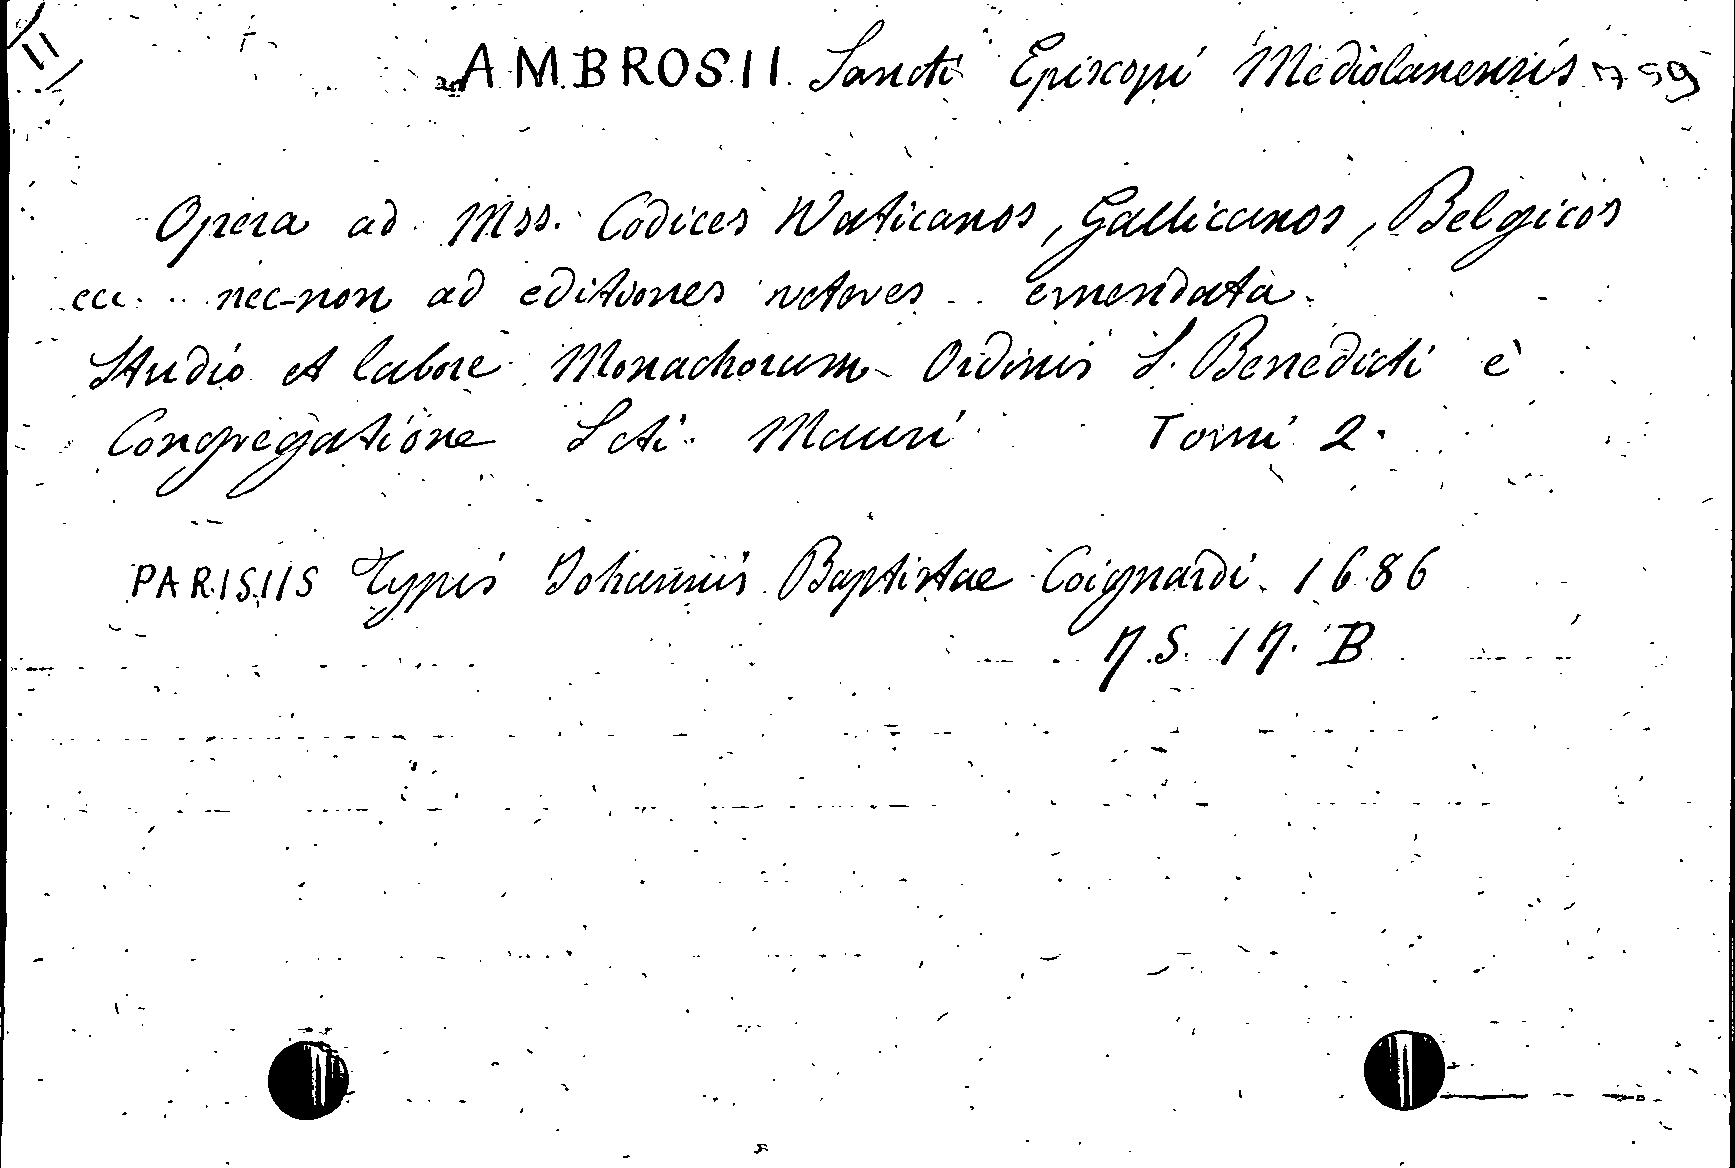 11
AMBROSII Sancti Episcopi Mediolanensis 759
Opera ad Mss. Codices Vaticanos, Gallicanos, Belgicos
ecc. .. nec-non ad editiones veteres .. emendata.
Studio et labore Monachorum Ordinis S. Benedicti è
Congregatione Scti. Mauri Tomi 2.
PARISIIS Typis Johannis Baptistae Coignardi. 1686